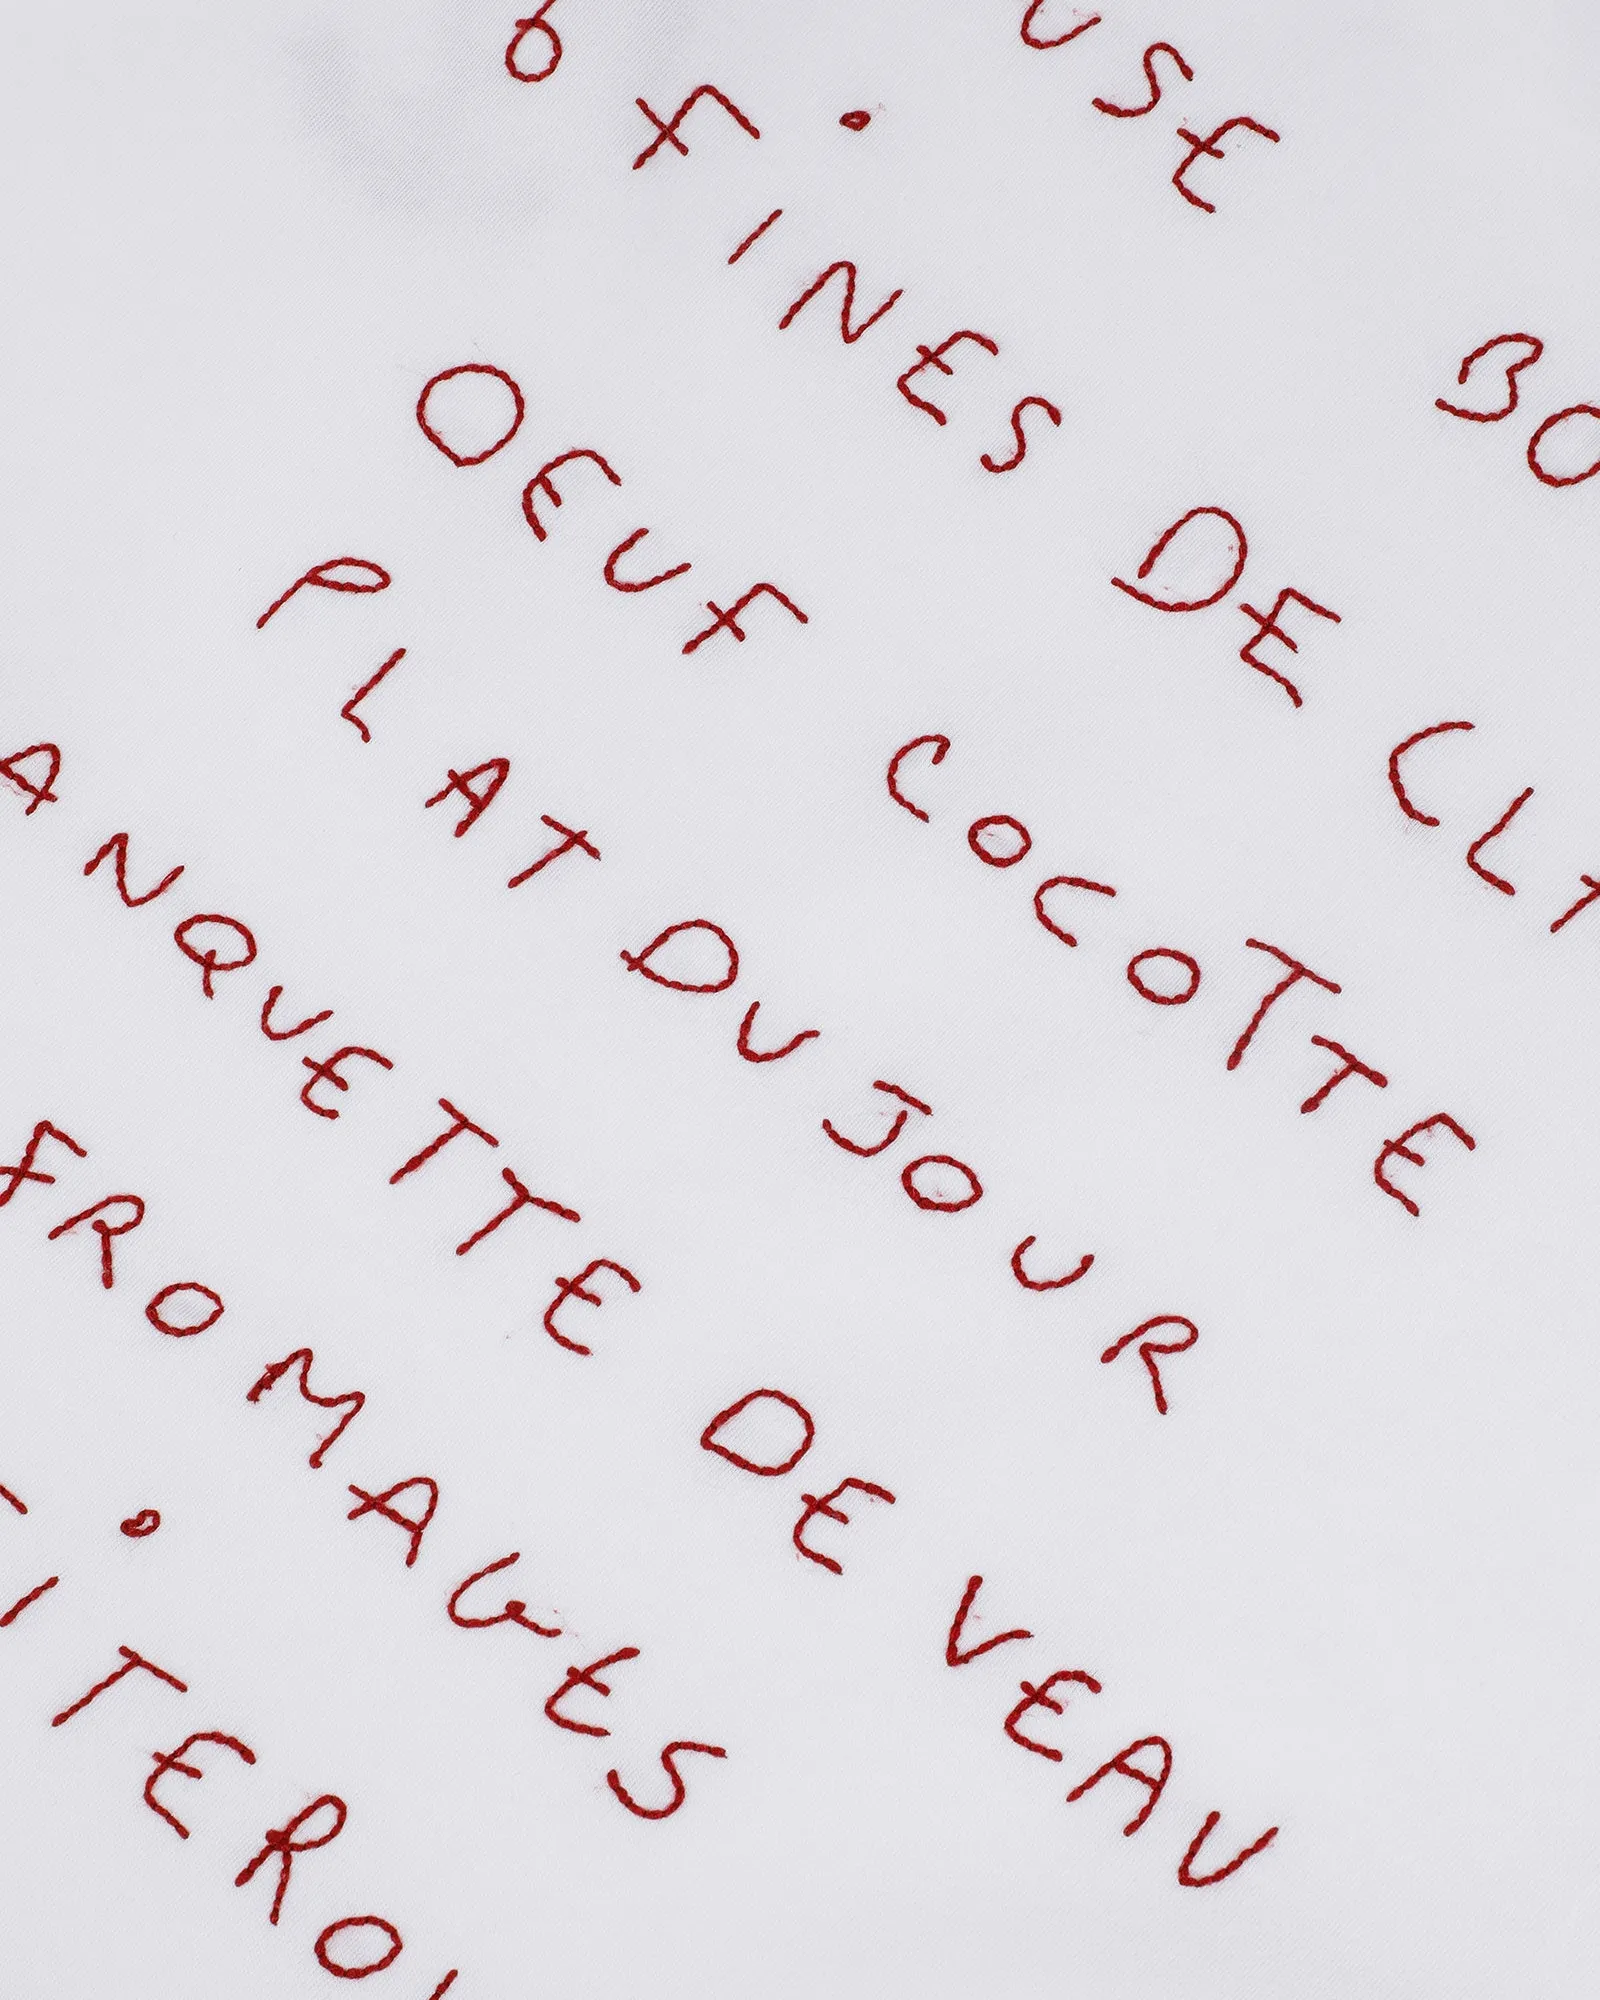 USE BO
6 FINES DE CL
OEUF COCOTTE
PLAT DU JOUR
ANQUETTE DE VEAU
FROMAGES
ITERO